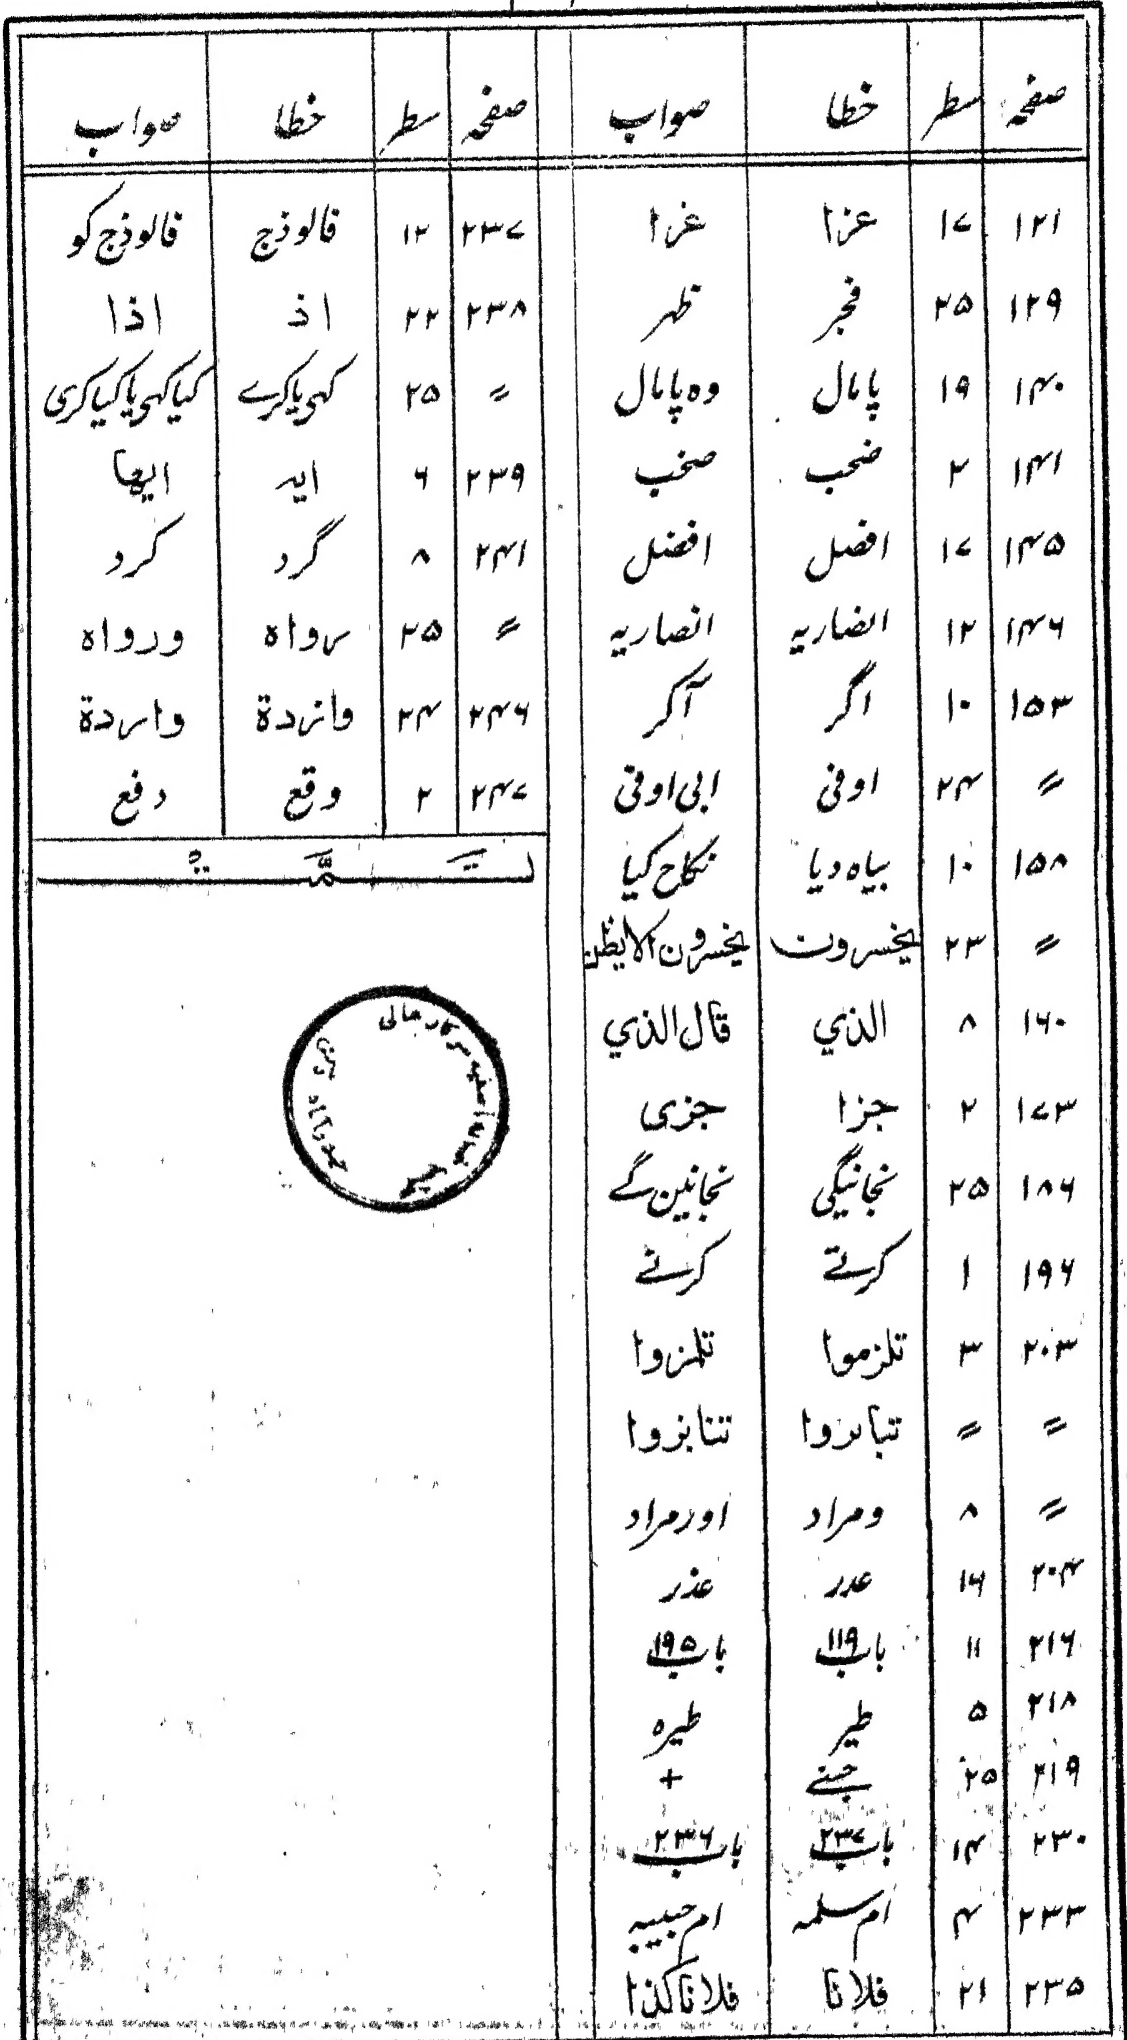 صفحہ سطر خطا صواب
۱۲۱ ۱۷ عزا غزا
۱۲۹ ۲۵ فجر ظہر
۱۴۰ ۱۹ پامال وہ پامال
۱۴۱ ۲ ضخب صخب
۱۴۵ ۱۷ افصل افضل
۱۴۶ ۱۲ انضاریہ انصاریہ
۱۵۳ ۱۰ اگر آکر
〃 ۲۴ اوفی ابی اوفی
۱۵۸ ۱۰ بیاہ دیا نکاح کیا
〃 ۲۳ یخسرون یخسرون الا یظن
۱۶۰ ۸ الذي قال الذي
۱۷۳ ۲ جزا جزی
۱۸۶ ۲۵ نجانیگی نجانین گے
۱۹۶ ۱ کرتے کرنے
۲۰۳ ۳ تلزموا تلمزوا
〃 〃 تبانروا تنابزوا
〃 ۸ ومراد اور مراد
۲۰۴ ۱۶ عدر عذر
۲۱۶ ۱۱ باب ۱۱۹ باب ۱۹۵
۲۱۸ ۵ طیر طیرہ
۲۱۹ ۲۵ جنے +
۲۳۰ ۱۴ باب ۲۳۷ باب ۲۳۶
۲۳۳ ۴ ام سلمہ ام حبیبہ
۲۳۵ ۲۱ فلانا فلانا کذا
صفحہ سطر خطا صواب
۲۳۷ ۱۲ فالوذج فالوذج کو
۲۳۸ ۲۲ اذ اذا
〃 ۲۵ کہی یا کرے کیا کہی یا کیا کری
۲۳۹ ۶ ایہ ایھا
۲۴۱ ۸ گرد کرد
〃 ۲۵ رواہ ورواہ
۲۴۶ ۲۴ وانردة واردة
۲۴۷ ۲ وقع دفع
تمت